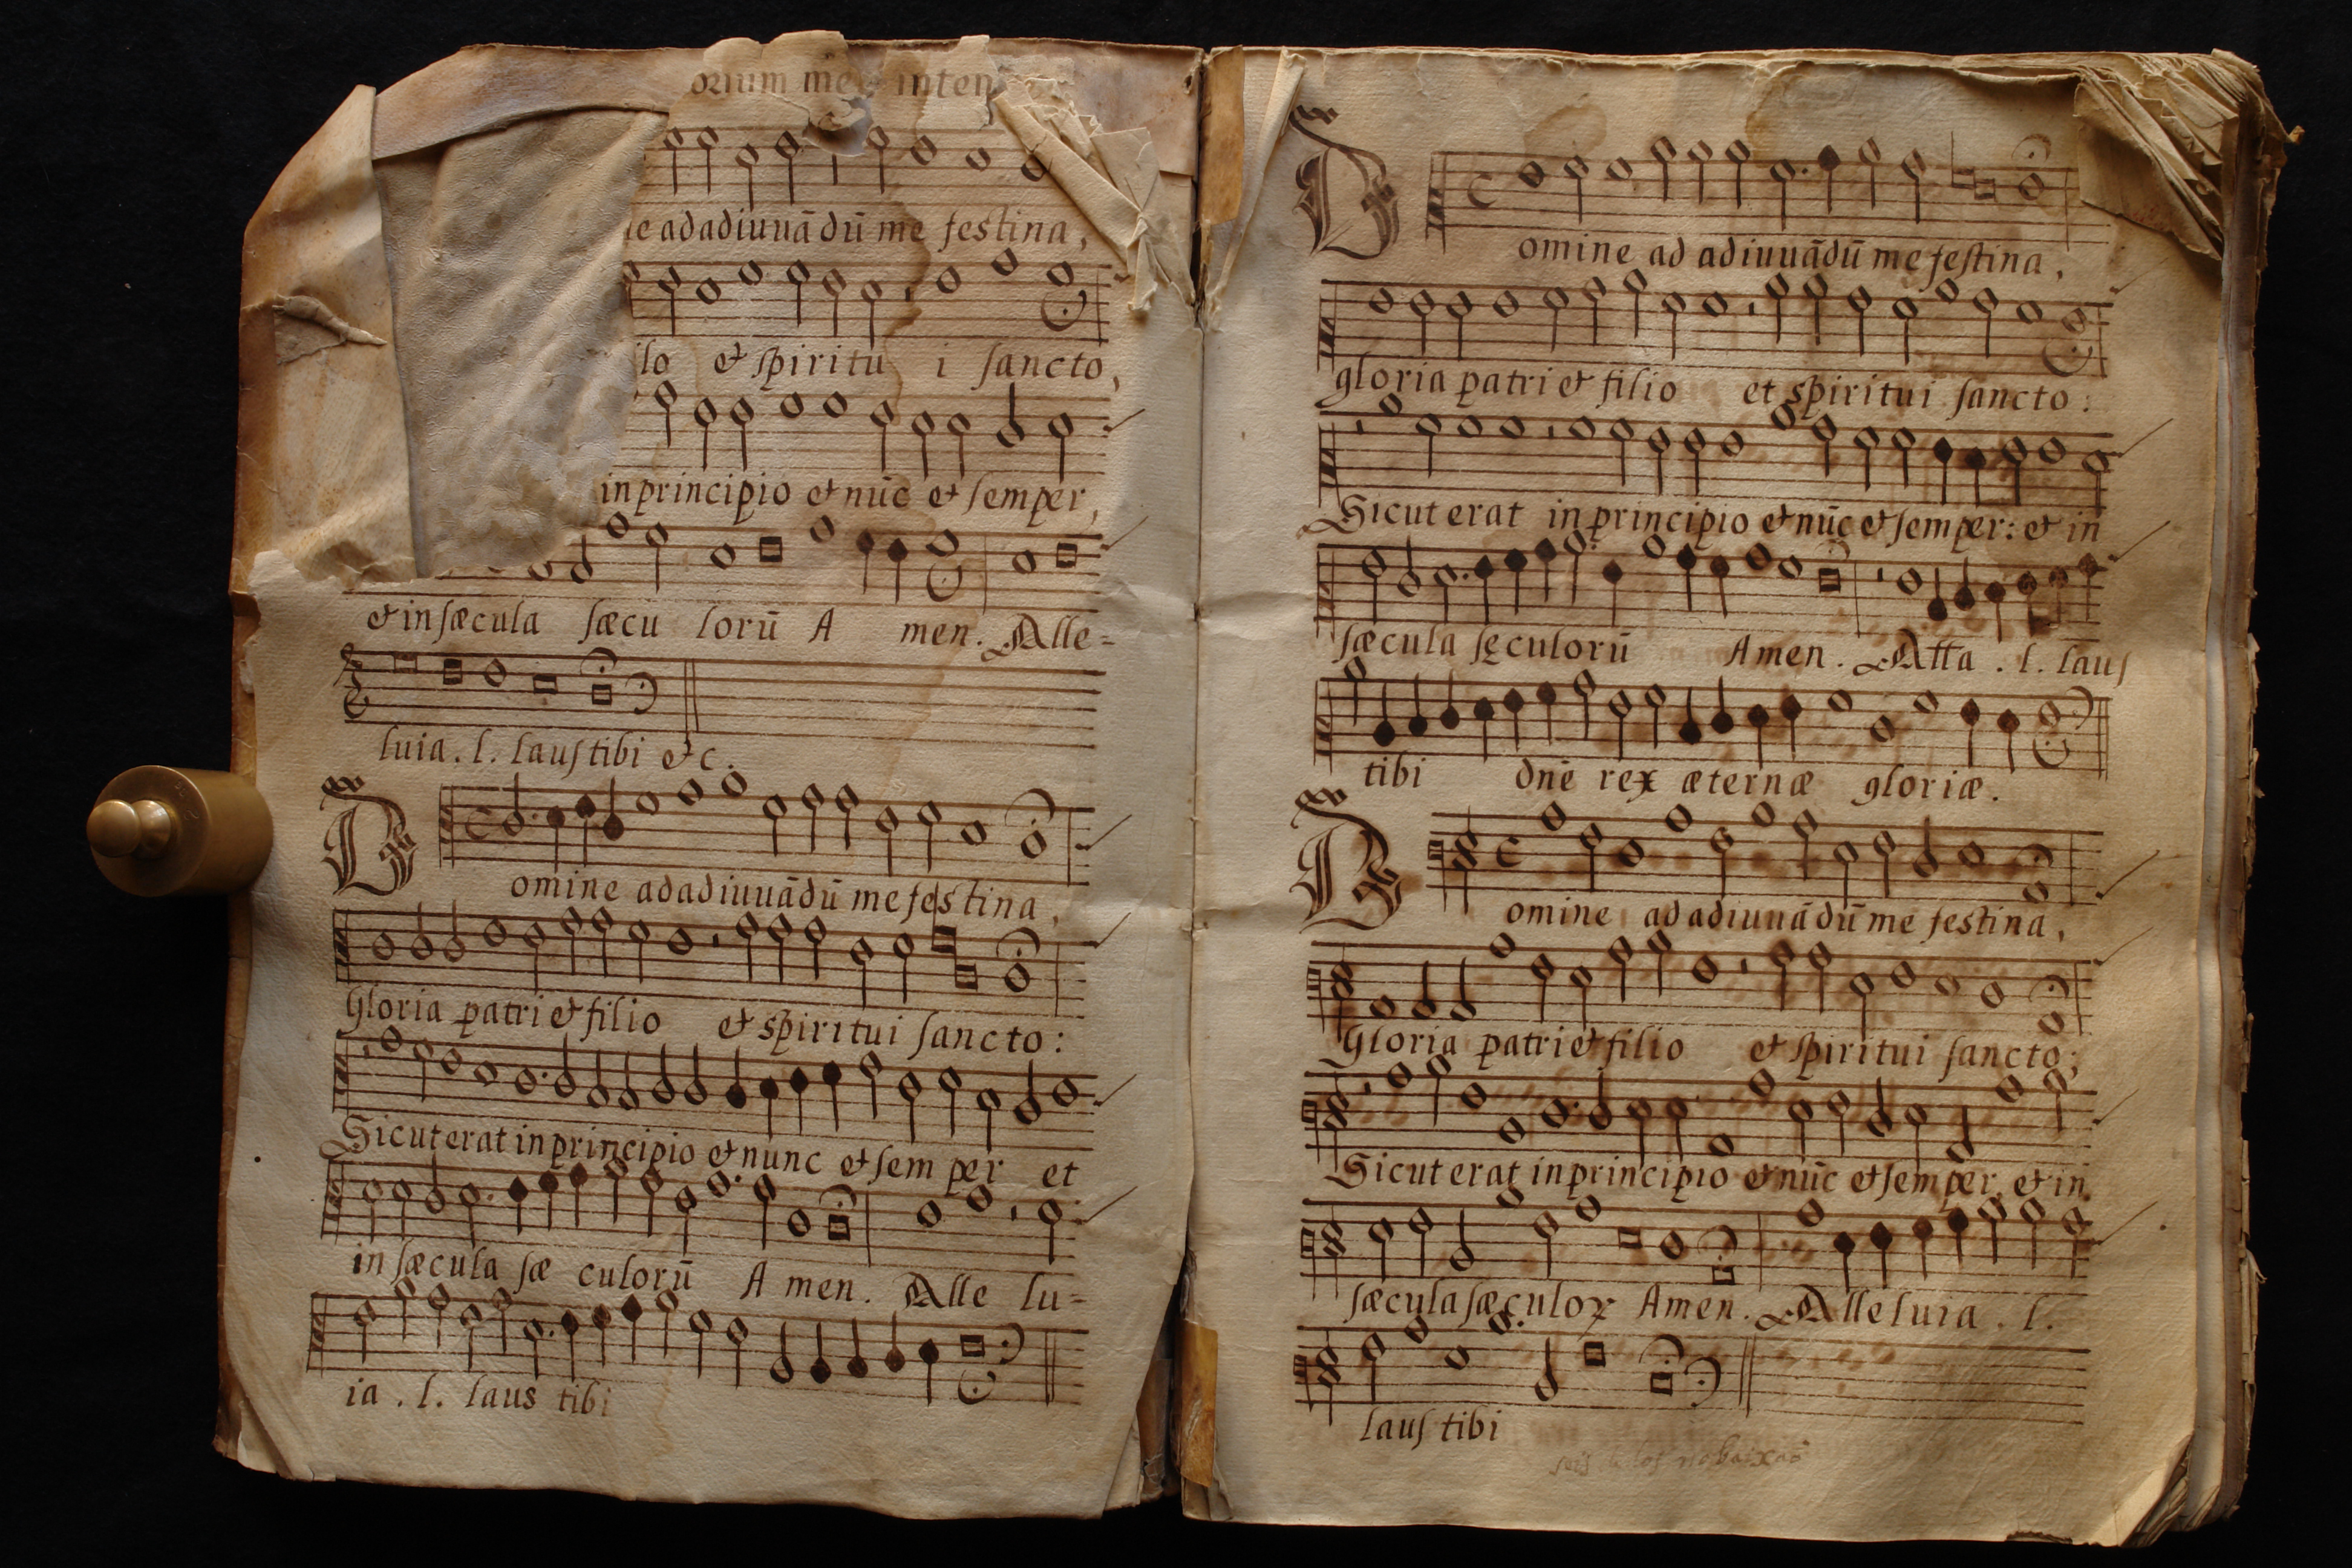 me inten
ne adadiuuādū me festina,
ilo & spiritu i sancto,
in principio & nūc & semper,
& in sæcula sæcu lorū A men. Alle-
luia. l. laus tibi &c.
Domine adadiuuādū me festina,
Gloria patri & filio & spiritui sancto:
Sicut erat in principio & nunc & sem per et
in sæcula sæ culorū A men. Alle lu-
ia. l. laus tibi
Domine ad adiuuādū me festina,
gloria patri & filio et spiritui sancto:
Sicut erat in principio & nūc & semper: & in
sæcula sęculorū Amen. Alla. l. laus
tibi dnē rex æternæ gloriæ.
Domine ad adiuuādū me festina,
Gloria patri & filio & spiritui sancto;
Sicut erat in principio & nūc & semper, & in
sæcula sæculoꝝ Amen. Alleluia. l.
laus tibi